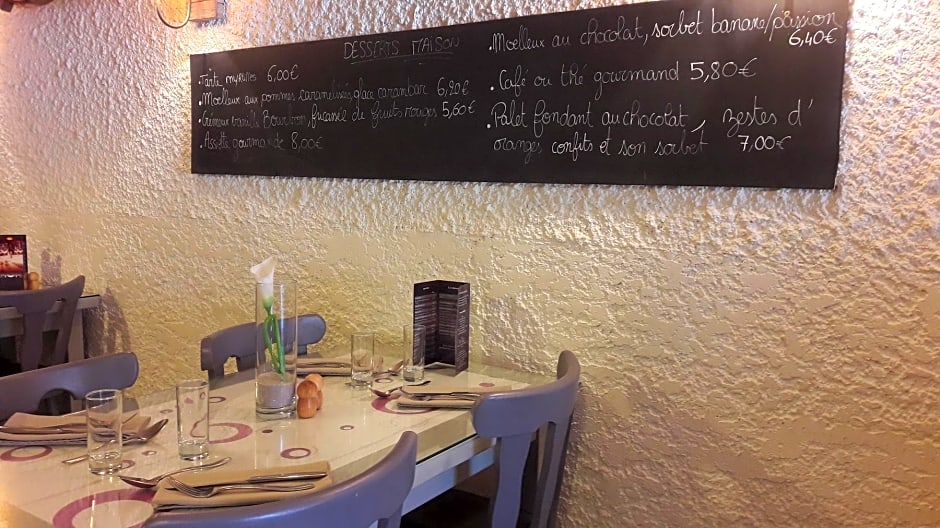 DESSERTS MAISON
. Tarte myrtilles 6,00€
. Moelleux aux pommes caramélisées, glace carambar 6,20€
. Crémeux vanille Bourbon, fricassée de fruits rouges 5,60€
. Assiette gourmande 8,00€
. Moelleux au chocolat, sorbet banane/passion
6,40€
. Café ou thé gourmand 5,80€
. Palet fondant au chocolat, zestes d'
oranges confits et son sorbet 7,00€